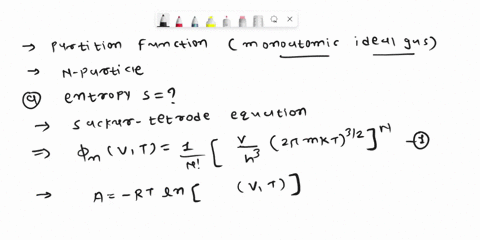 → Partition Function (monoatomic ideal gas)
→ N-particle
(a) entropy s=?
→ Sackur-tetrode equation
⇒ Φn (V,T) = 1/N! [ V/h³ (2π mKT)^3/2 ]^N —①
→ A = -RT ln [ (V,T) ]